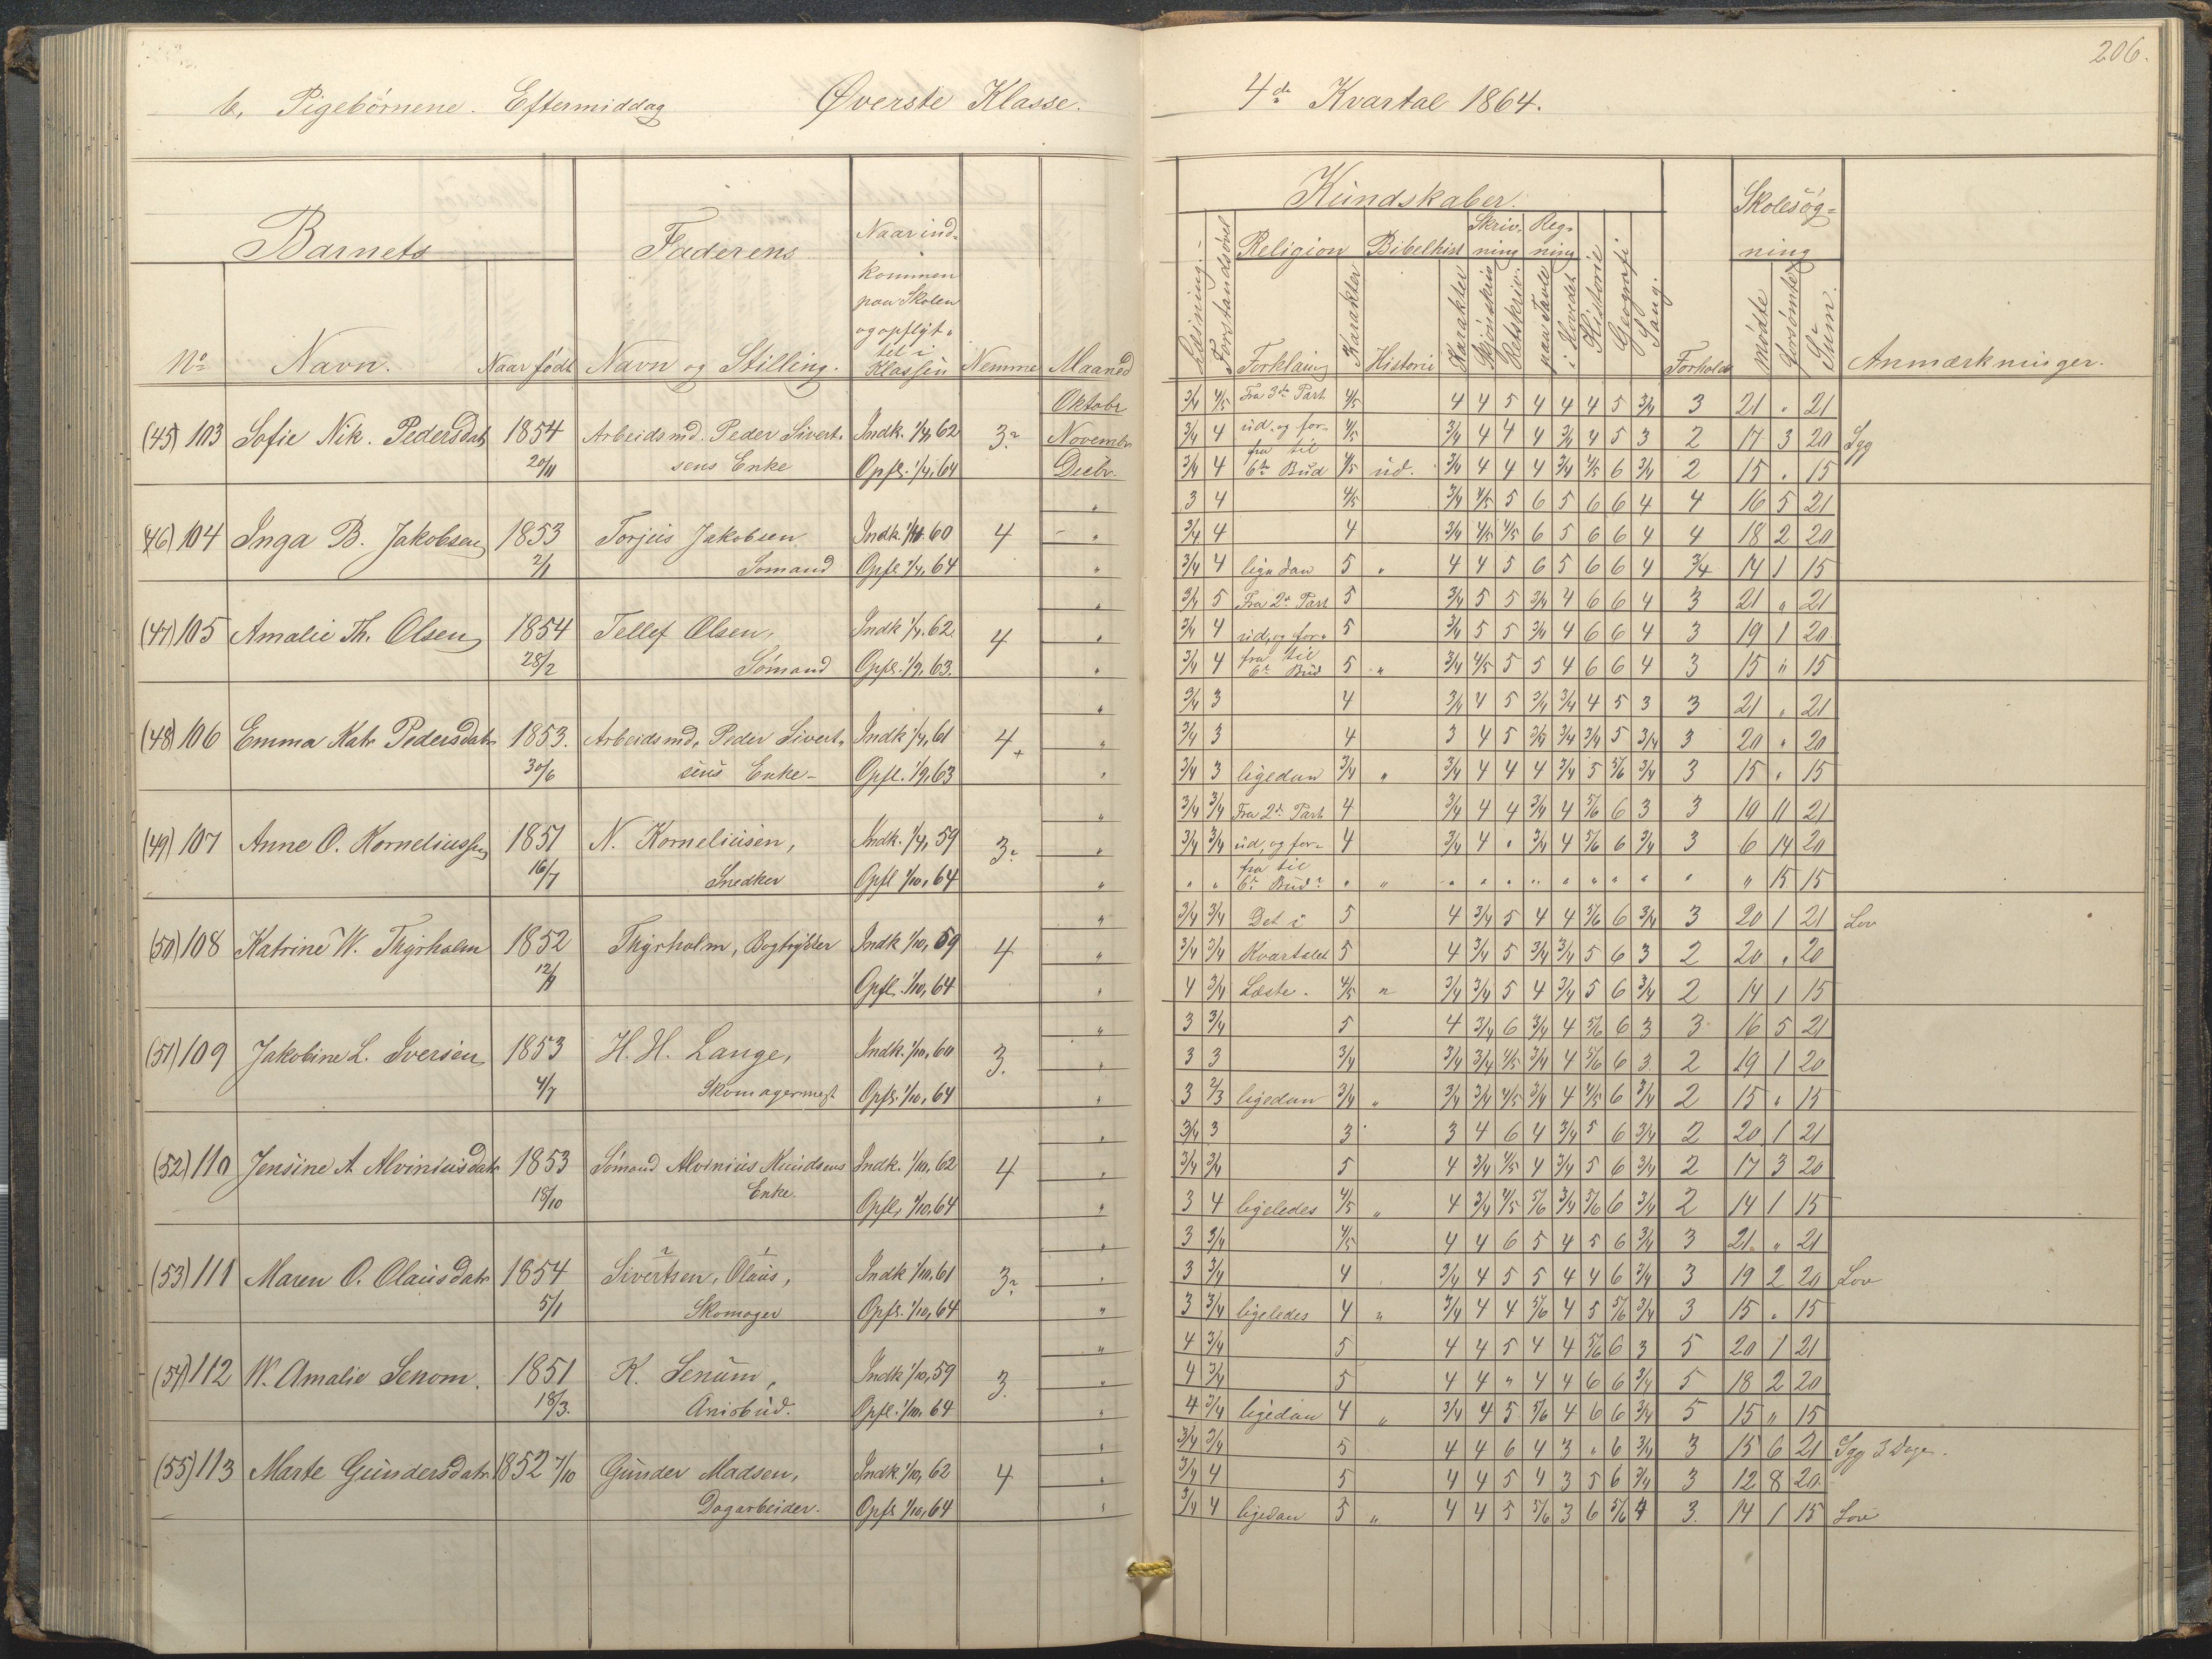 206.
b, Pigebørnene. Eftermiddag Øverste Klasse. 4de Kvartal 1864.
Barnets Faderens Naar ind-
kommen
paa Skolen
og opflyt-
tet i
Klassen
No Navn. Naar født Navn og Stilling. Nemme Maaned
Kundskaber. Skolesøg-
ning
Læsning. Forstandsøvel Religion Bibelhist Skriv-
ning Reg-
ning Historie Geografi Sang.
Forklaring Karakter Historie Karakter Skjønskriv Retskriv. paa Tavle i Hovedet Forhold mødte forsømte Sum. Anmærkninger.
Oktobr 3/4 4/5 Fra 3die Part 4/5 4 4 5 4 4 4 5 3/4 3 21 " 21
(45) 103 Sofie Nik. Pedersdatr 1854 Arbeidsmd. Peder Sivert- Indk. 1/4, 62 3? Novembr 3/4 4 ud. og for- 4/5 3/4 4 4 4 3/4 4 5 3 2 17 3 20 Syg
20/11 sens Enke Opfl. 1/4, 64 Decbr. 3/4 4 fra til
6te Bud 4/5 ud. 3/4 4 4 4 3/4 4/5 6 3/4 2 15 " 15
" 3 4 4/5 3/4 4/5 5 6 5 6 6 4 4 16 5 21
(46) 104 Inga B. Jakobsen 1853 Torjus Jakobsen Indk. 60 4 " 3/4 4 4 3/4 4/5 4/5 6 5 6 6 4 4 18 2 20
2/1 Sømand Opfl. 1/4, 64 " 3/4 4 ligedan 5 " 4 4 5 6 5 6 6 4 3/4 14 1 15
" 3/4 5 Fra 2d Part 5 3/4 5 5 3/4 4 6 6 4 3 21 " 21
(47) 105 Amalie Th. Olsen 1854 Tellef Olsen, Indk 1/4. 62 4 " 3/4 4 ud, og for- 5 3/4 5 5 3/4 4 6 6 4 3 19 1 20
28/2 Sømand Opfl. 1/9, 63. " 3/4 4 fra til
6te Bud 5 " 3/4 4/5 5 5 4 6 6 4 3 15 " 15
" 3/4 3 4 3/4 4 5 3/4 3/4 4 5 3 3 21 " 21
(48) 106 Emma Katr Pedersdatr 1853. Arbeidsmd. Peder Sivert- Indk 1/4, 61 4+ " 3/4 3 4 3 4 5 3/4 3/4 3/4 5 3/4 3 20 " 20
30/6 sens Enke - Opfl. 1/9, 63 " 3/4 3 ligedan 3/4 " 3/4 4 4 4 3/4 5 5/6 3/4 3 15 " 15
" 3/4 3/4 Fra 2d Part 4 3/4 4 4 3/4 4 5/6 6 3 3 10 11 21
(49) 107 Anne O. Korneliussen 1851 N. Korneliusen, Indk. 1/4, 59 3? " 3/4 3/4 ud, og for- 4 3/4 4 " 3/4 4 5/6 6 3/4 3 6 14 20
16/7 Snedker Opfl 1/10, 64 " " " fra til
6te Bud " " " " " " " " " " " " 15 15
" 3/4 3/4 Det i 5 4 3/4 5 4 4 5/6 6 3/4 3 20 1 21 Lov
(50) 108 Katrine W. Thyrholm 1852 Thyrholm, Bogtrykker Indk 1/10, 59 4 " 3/4 3/4 Kvartalet 5 4 3/4 5 3/4 3/4 5 6 3 2 20 " 20
Opfl. 1/10, 64 " 4 3/4 Læste. 4/5 " 3/4 3/4 5 4 3/4 5 6 3/4 2 14 1 15
" 3 3/4 5 4 3/4 6 3/4 4 5/6 6 3 3 16 5 21
(51) 109 Jakobine L. Iversen 1853 H. H. Lange, Indk. 1/10, 60 3. " 3 3 3/4 3/4 3/4 4/5 3/4 4 5/6 6 3 2 19 1 20
4/7 Skomagermest Opfl. 1/10, 64 " 3 2/3 ligedan 3/4 " 3/4 3/4 4/5 3/4 4 4/5 6 3/4 2 15 " 15
" 3/4 3 3 3 4 6 4 3/4 5 6 3/4 2 20 1 21
(52) 110 Jensine A Alviniusdatr 1853 Sømand Alvinius Knudsens Indk. 1/10, 62 4 " 3/4 3/4 5 4 3/4 4/5 4 3/4 5 6 3/4 2 17 3 20
18/10 Enke. Opfl. 1/10, 64 " 3 4 ligeledes 4/5 " 4 3/4 4/5 5/6 3/4 5/6 6 3/4 2 14 1 15
" 3 3/4 4/5 4 4 6 5 4 5 6 3/4 3 21 " 21
(53) 111 Maren O. Olausdatr 1854 Sivertsen, Olaus, Indk 1/10, 61 3? " 3 3/4 4 3/4 4 5 5 4 4 6 3/4 3 19 2 20 Lov
5/1 Skomager Opfl. 1/10, 64 " 3 3/4 ligeledes 4 " 3/4 4 4 5/6 4 5 5/6 3/4 3 15 " 15
" 4 3/4 5 4 4 5 4 4 5/6 6 3 5 20 1 21
(54) 112 W. Amalie Senom. 1851 K. Senum, Indk 1/10, 59 3. " 4 3/4 5 4 4 " 4 4 6 6 3/4 5 18 2 20
18/3. Avisbud. Opfl. 1/10, 64 " 4 3/4 ligedan 4 " 3/4 4 5 5/6 4 6 6 3/4 5 15 " 15
" 3/4 3/4 5 4 4 6 4 3 " 6 3/4 3 15 6 21 Syg 3 Dage.
(55) 113 Marte Gundersdatr 1852 7/10 Gunder Madsen, Indk 1/10, 62 4 " 3/4 4 5 4 4 5 4 3 5 6 3/4 3 12 8 20
Dagarbeider. Opfl 1/10, 64 " 3/4 4 ligedan 5 " 4 4 5 5/6 3 6 5/6 4 3. 14 1 15 Lov